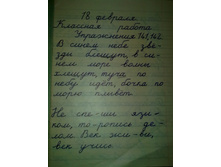 18 февраля
Классная работа
Упражнения 141, 142
В синем небе звё-
зды блещут, в си-
нем море волны
хлещут, туча по
небу идёт, бочка по
морю плывёт.
Не спе-ши язы-
ком, то-ропись де-
лом. Век жи-ви,
век учись.